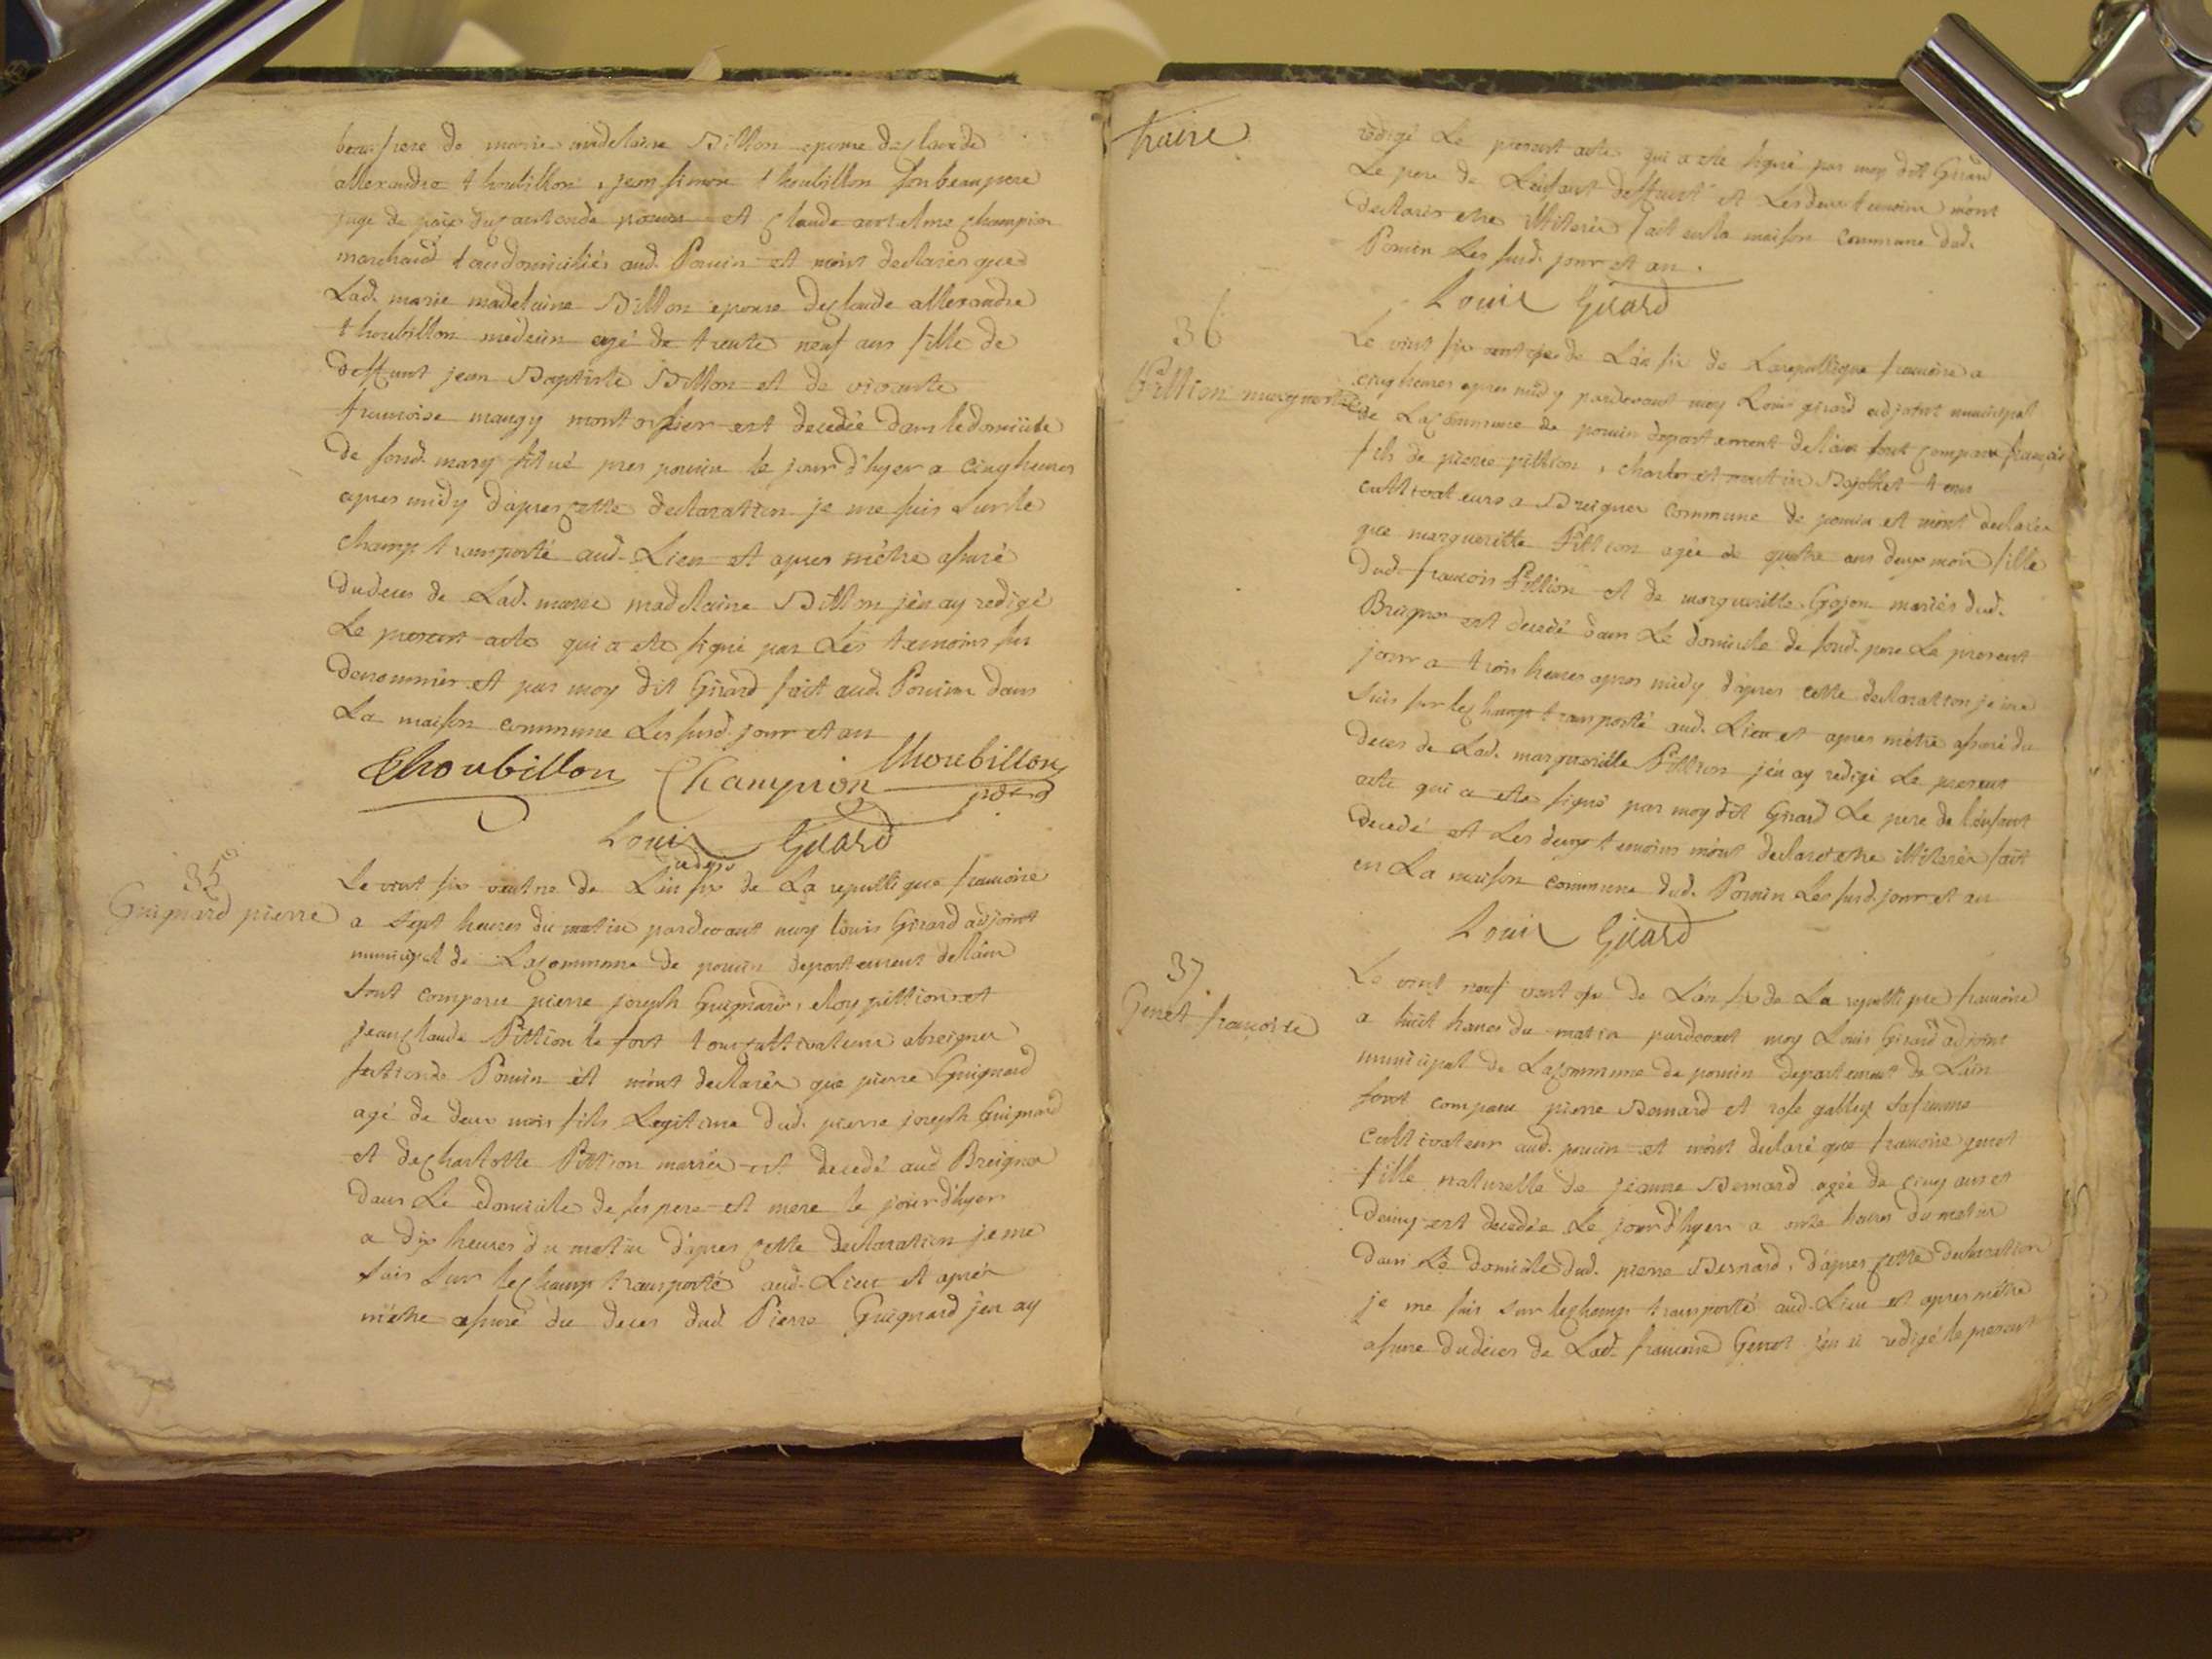 beau frere de marie madelaine Billon epouse de Claude
allexandre thoubillon, jean simon thoubillon son beau pere
juge de paix du canton de pouin et Claude antelme champion
marchand tous domiciliés aud. Pouin et mont declarés que
Lad. marie madelaine Billon epouse de Claude allexandre
thoubillon medecin agé de trente neuf ans fille de
deffunt jean Baptiste Billon et de vivante
francoise maugy est decedée dans le domicile
de sond. mary situé pres pouin le jour d'hyer a cinq heures
apres midy d'apres cette declaration je me suis sur le
champ transporté aud. Lieu et apres m'etre assuré
du deces de Lad. marie madelaine Billon j'en ay redigé
Le present acte qui a ete signé par Les temoins sus
denommés et par moy dit Girard fait aud. Pouin dans
La maison commune Les susd. jour et an
Thoubillon Champion Thoubillon
Louis Girard
35
Guignard pierre
Le vint six ventose de L'an six de La republique francoise
a sept heures du matin pardevant moy louis Girard adjoint
municipal de La commune de pouin departement de l'ain
sont comparu pierre joseph Guignard, eloy pittion et
jean claude Pittion le fort tous cultivateurs a breignes
section de Pouin et m'ont declarés que pierre Guignard
agé de deux mois fils Legitime dud. pierre joseph Guignard
et de Charlotte Pittion mariés est decedé aud Breignes
dans Le domicile de ses pere et mere le jour d'hyer
a dix heures du matin d'apres cette declaration je me
suis sur le champ transporté aud. Lieu et aprés
m'etre assuré du deces dud Pierre Guignard j'en ay
traire
redigé Le present acte qui a ete signé par moy dit Girard
Le pere de L'enfant deffunt et Les deux temoins m'ont
declarés etre illiterés fait en la maison commune dud.
Pouin Les susd. jour et an.
Louis Girard
36
Pittion marguerite
Le vint six ventose de L'an six de La republique francoise a
cinq heures apres midy pardevant moy Louis girard adjoint municipal
de La commune de pouin departement de l'ain sont comparu françois
fils de pierre pittion, charles et martin Bajollet tous
cultivateurs a Breignes commune de pouin et m'ont declarés
que margueritte Pittion agée de quatre ans deux mois fille
dud. francois Pittion et de margueritte Gojon mariés dud.
Breignes est decedé dans Le domicile de sond. pere Le present
jour a trois heures apres midy d'apres cette declaration je me
suis sur le champ transporté aud. Lieu et apres m'etre assuré du
deces de Lad. margueritte Pittion j'en ay redigé Le present
acte qui a ete signé par moy dit Girard Le pere de l'enfant
decedé et Les deux temoins m'ont declarés etre illiterés fait
en La maison commune dud. Pouin Les susd. jour et an
Louis Girard
37
Genet francoise
Le vint neuf ventose de L'an six de La republique francoise
a huit heures du matin pardevant moy Louis Girard adjoint
municipal de La commune de pouin departement de L'ain
sont comparu pierre Bernard et rose galley sa femme
cultivateur aud. pouin et m'ont declaré que francoise genet
fille naturelle de jeanne Bernard agée de cinq ans et
demy est decedée Le jour d'hyer a onze heures du matin
dans Le domicile dud. pierre Bernard, d'apres cette declaration
je me suis sur le champ transporté aud. Lieu et apres m'etre
assuré du deces de Lad. francoise Genet j'en ai redigé le present